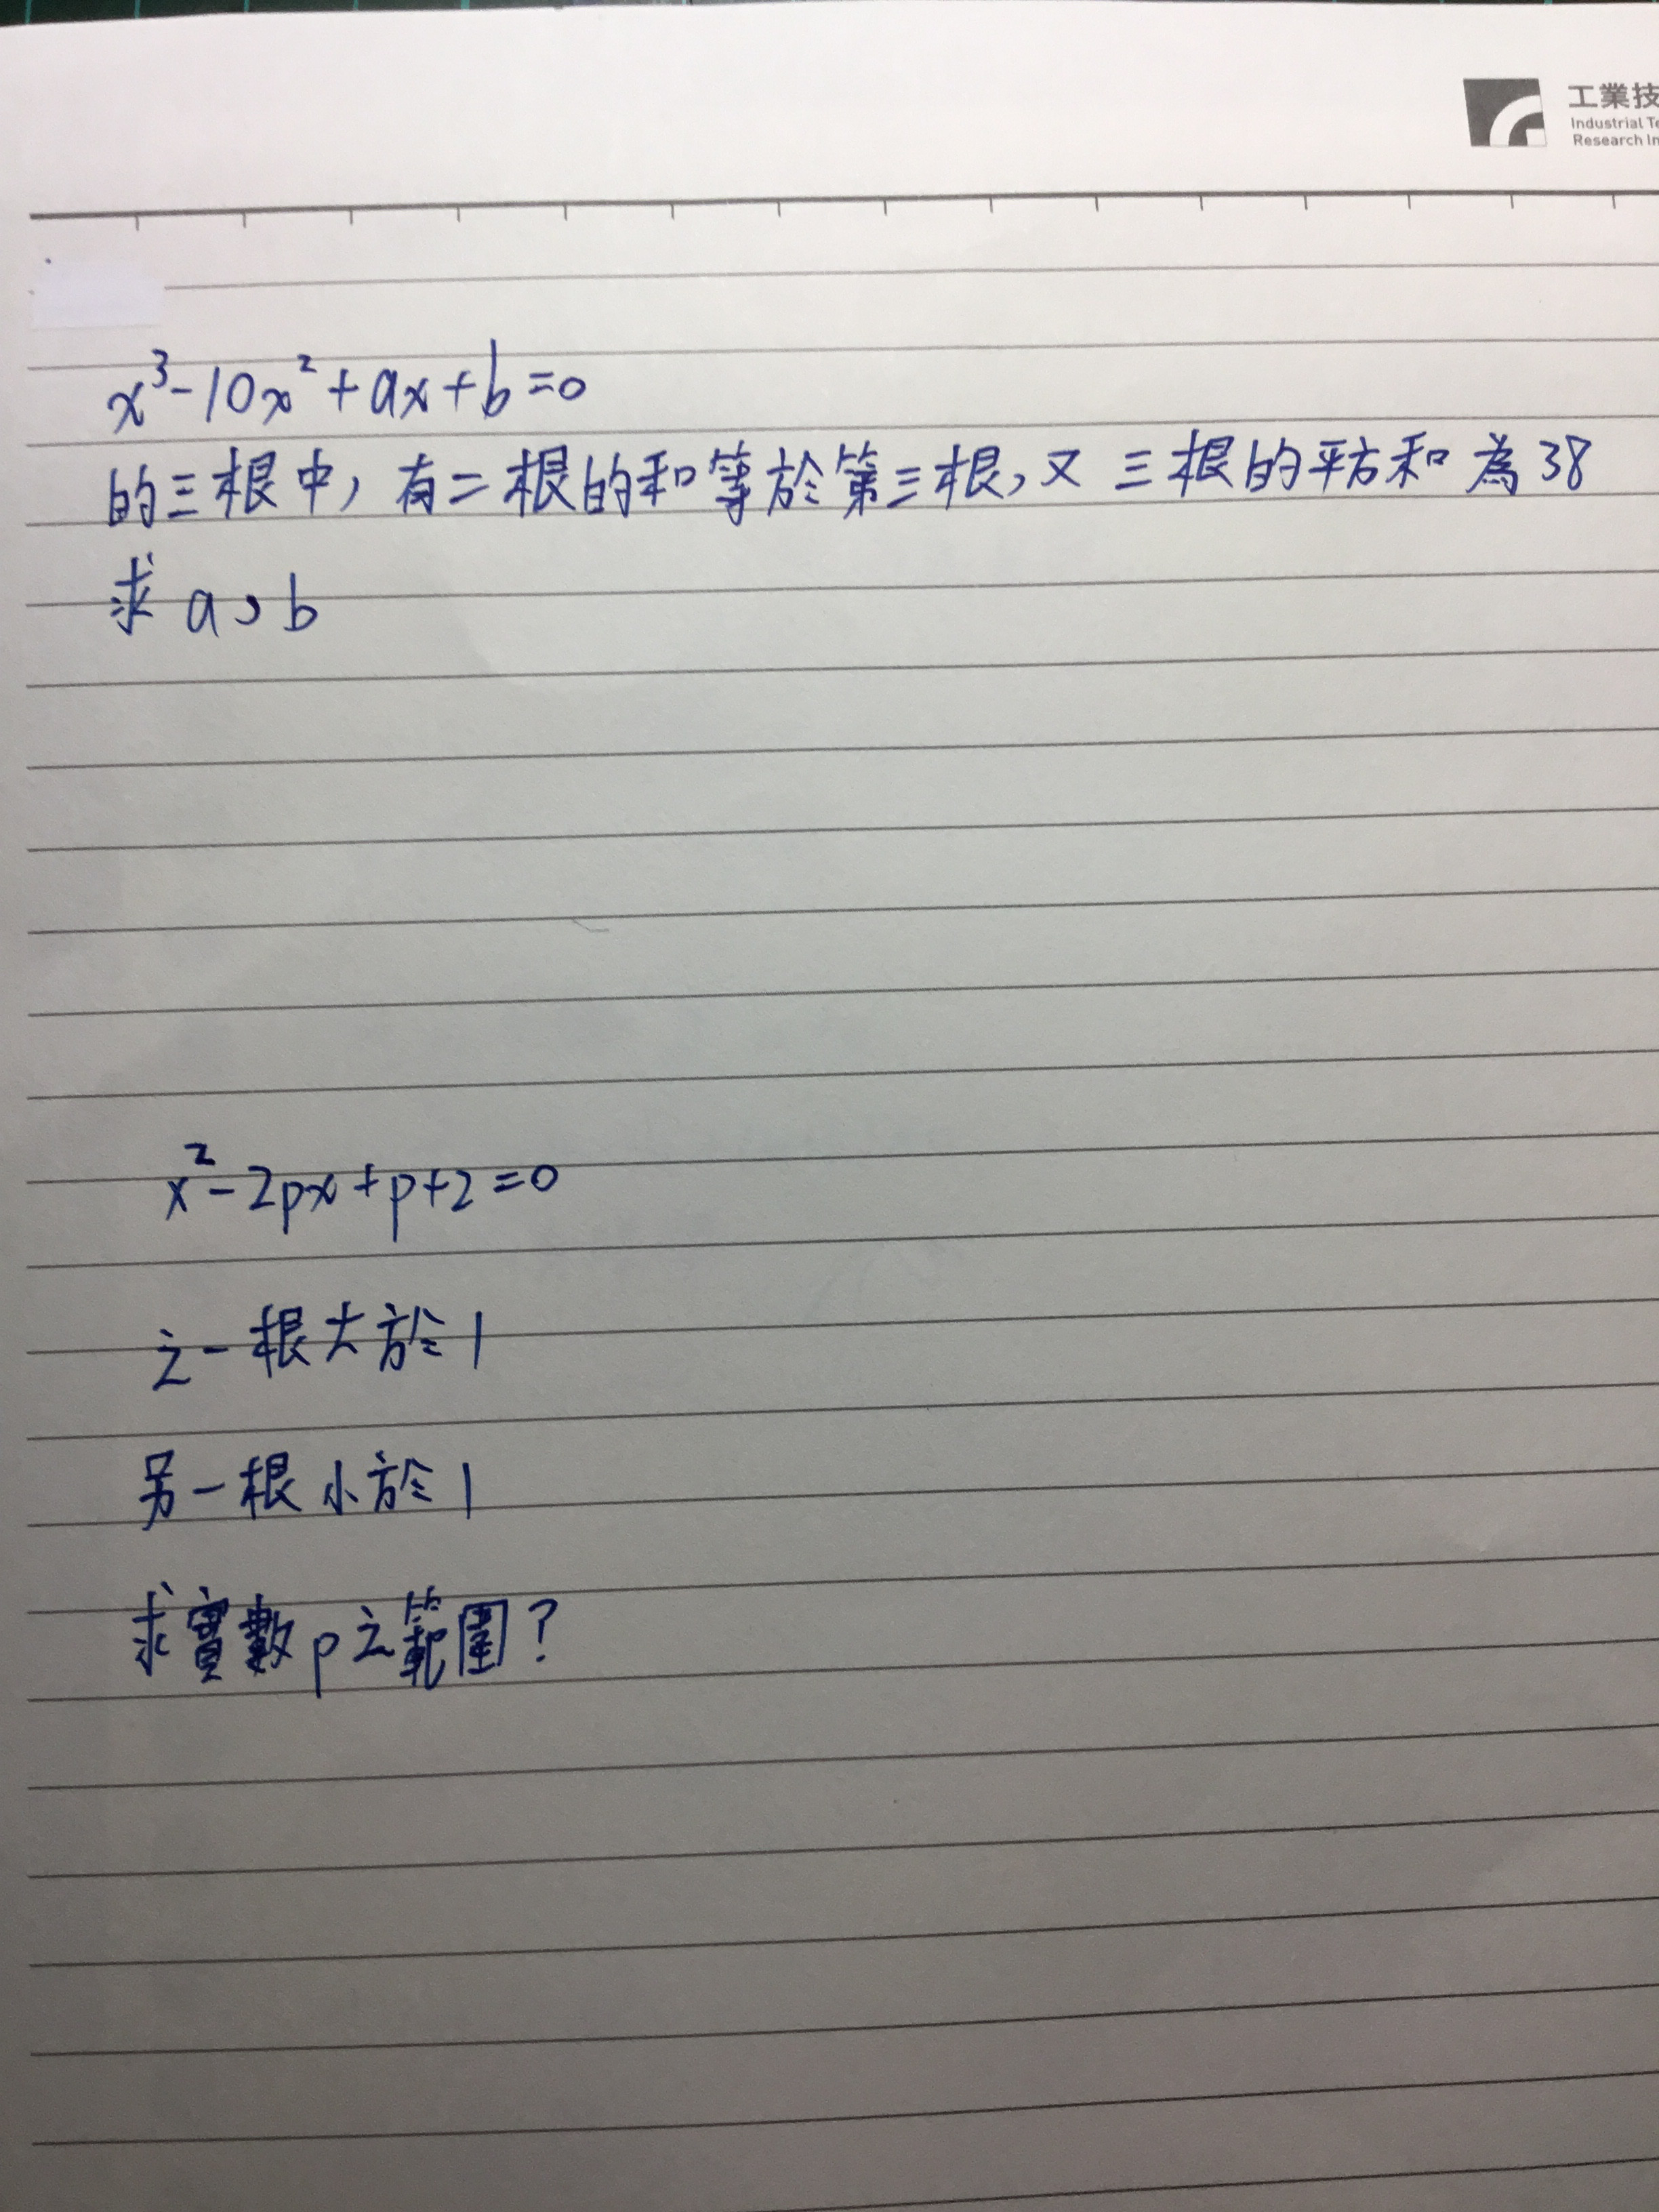 工業技
Industrial Te
Research In
x³-10x²+ax+b=0
的三根中，有二根的和等於第三根，又三根的平方和為38
求a、b
x²-2px+p+2=0
之一根大於1
另一根小於1
求實數p之範圍？